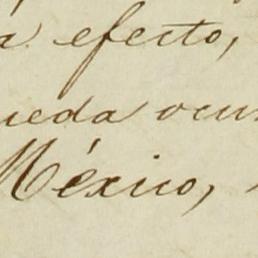 a efecto,
ueda ocur
México,